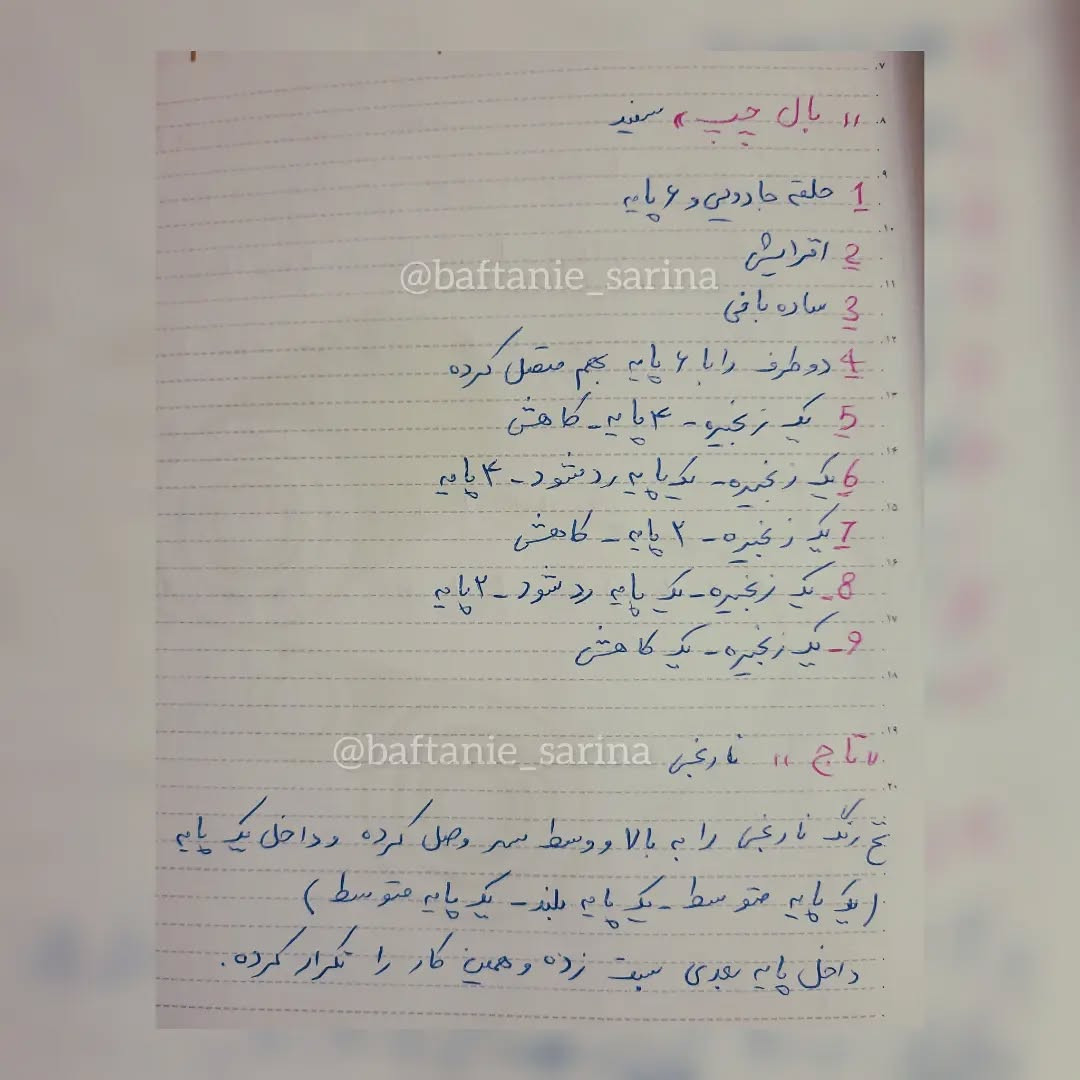 ۷
۸ "بال چپ" سفید
۹
1 حلقه جادویی و ۶ پایه
۱۰
2 افزایش
@baftanie_sarina
۱۱
3 ساده بافی
۱۲
4 دو طرف را با ۶ پایه بهم متصل کرده
۱۳
5 یک زنجیره - ۴ پایه - کاهش
۱۴
6 یک زنجیره - یک پایه رد شود - ۴ پایه
۱۵
7 یک زنجیره - ۲ پایه - کاهش
۱۶
8- یک زنجیره - یک پایه رد شود - ۲ پایه
۱۷
9- یک زنجیره - یک کاهش
۱۸
۱۹
"تاج" نارنجی
@baftanie_sarina
۲۰
نخ رنگ نارنجی را به بالا و وسط سر وصل کرده و داخل یک پایه
(یک پایه متوسط - یک پایه بلند - یک پایه متوسط)
داخل پایه بعدی ست زده و همین کار را تکرار کرده.